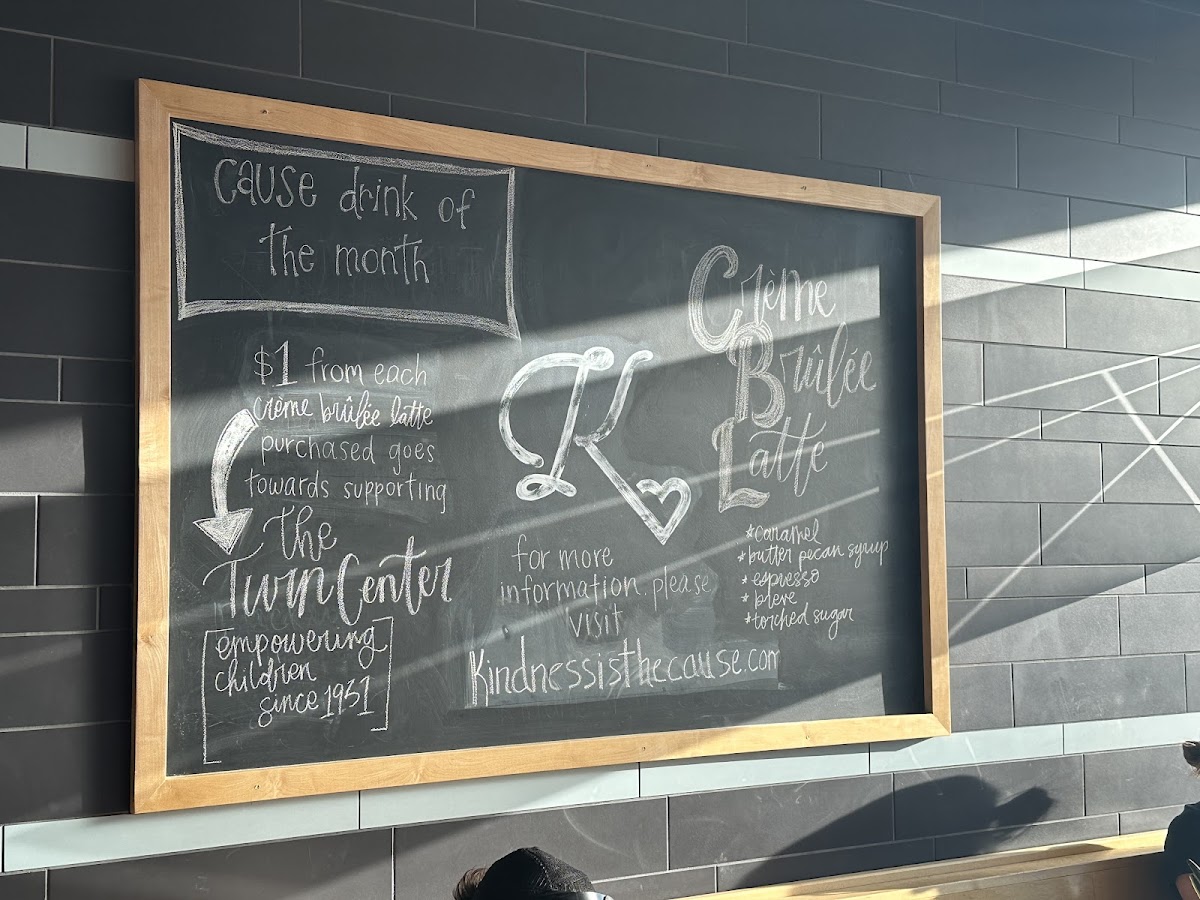 Cause drink of
the month
$1 from each
crème brûlée latte
purchased goes
towards supporting
The
Twin Center
empowering
children
since 1951
K
for more
information, please
visit
Kindnessisthecause.com
Crème
Brûlée
Latte
*caramel
*butter pecan syrup
*espresso
*breve
*torched sugar